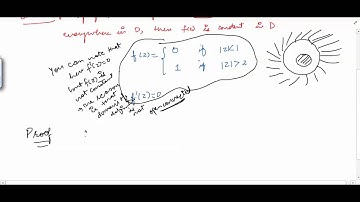 everywhere in D, then f(z) is constant in D.
you can note that
here f'(z)=0
but f(z) is
not constant
the reason
is that
domain of
definition is not open connected
f(z) = { 0 if |z|<1
1 if |z|>2
f'(z)=0
Proof :